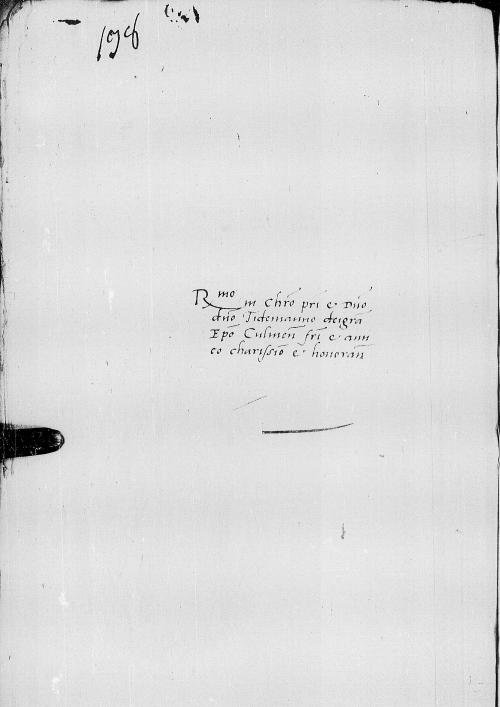 Rmo in Chro pri e Dno
dno Tidemanno dei gra
Epo Culmen fri e ami
co charissio e honoran